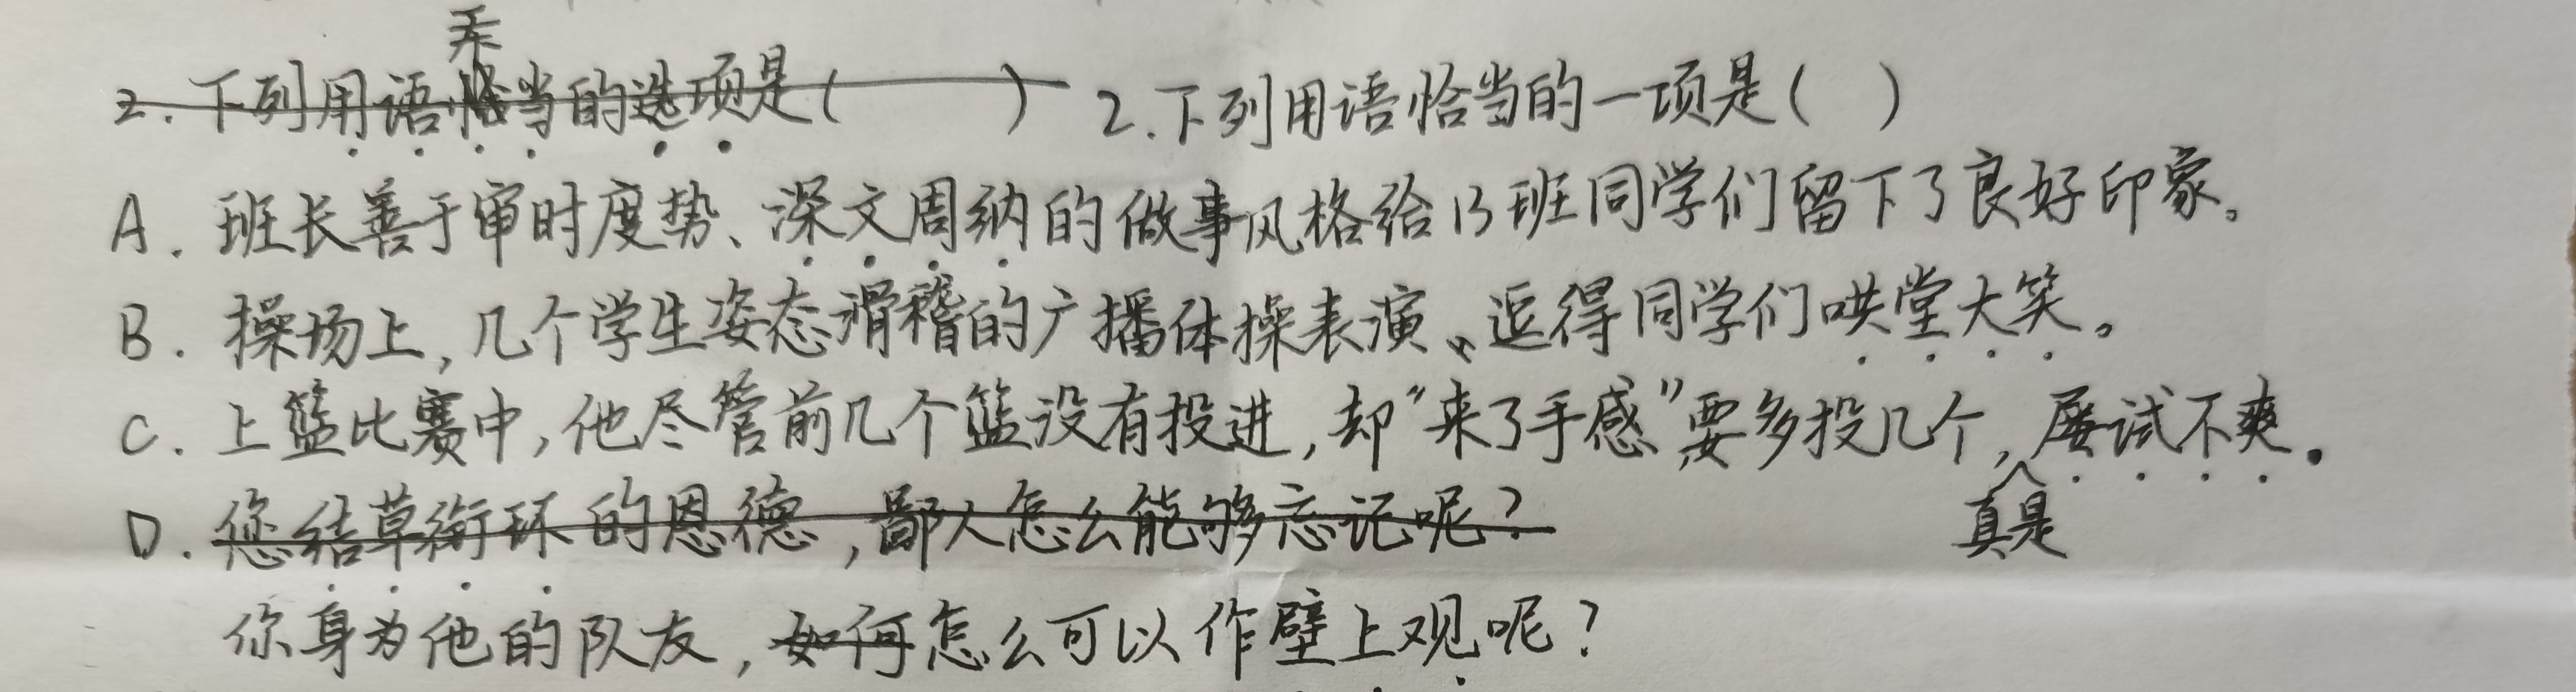 2.下列用语恰当的选项是( ) 2.下列用语恰当的一项是( )
A.班长善于审时度势、深文周纳的做事风格给13班同学们留下了良好印象。
B.操场上,几个学生姿态滑稽的广播体操表演,逗得同学们哄堂大笑。
C.上篮比赛中,他尽管前几个篮没有投进,却“来了手感”要多投几个,真是屡试不爽。
D.您结草衔环的恩德,鄙人怎么能够忘记呢?
你身为他的队友,如何怎么可以作壁上观呢?